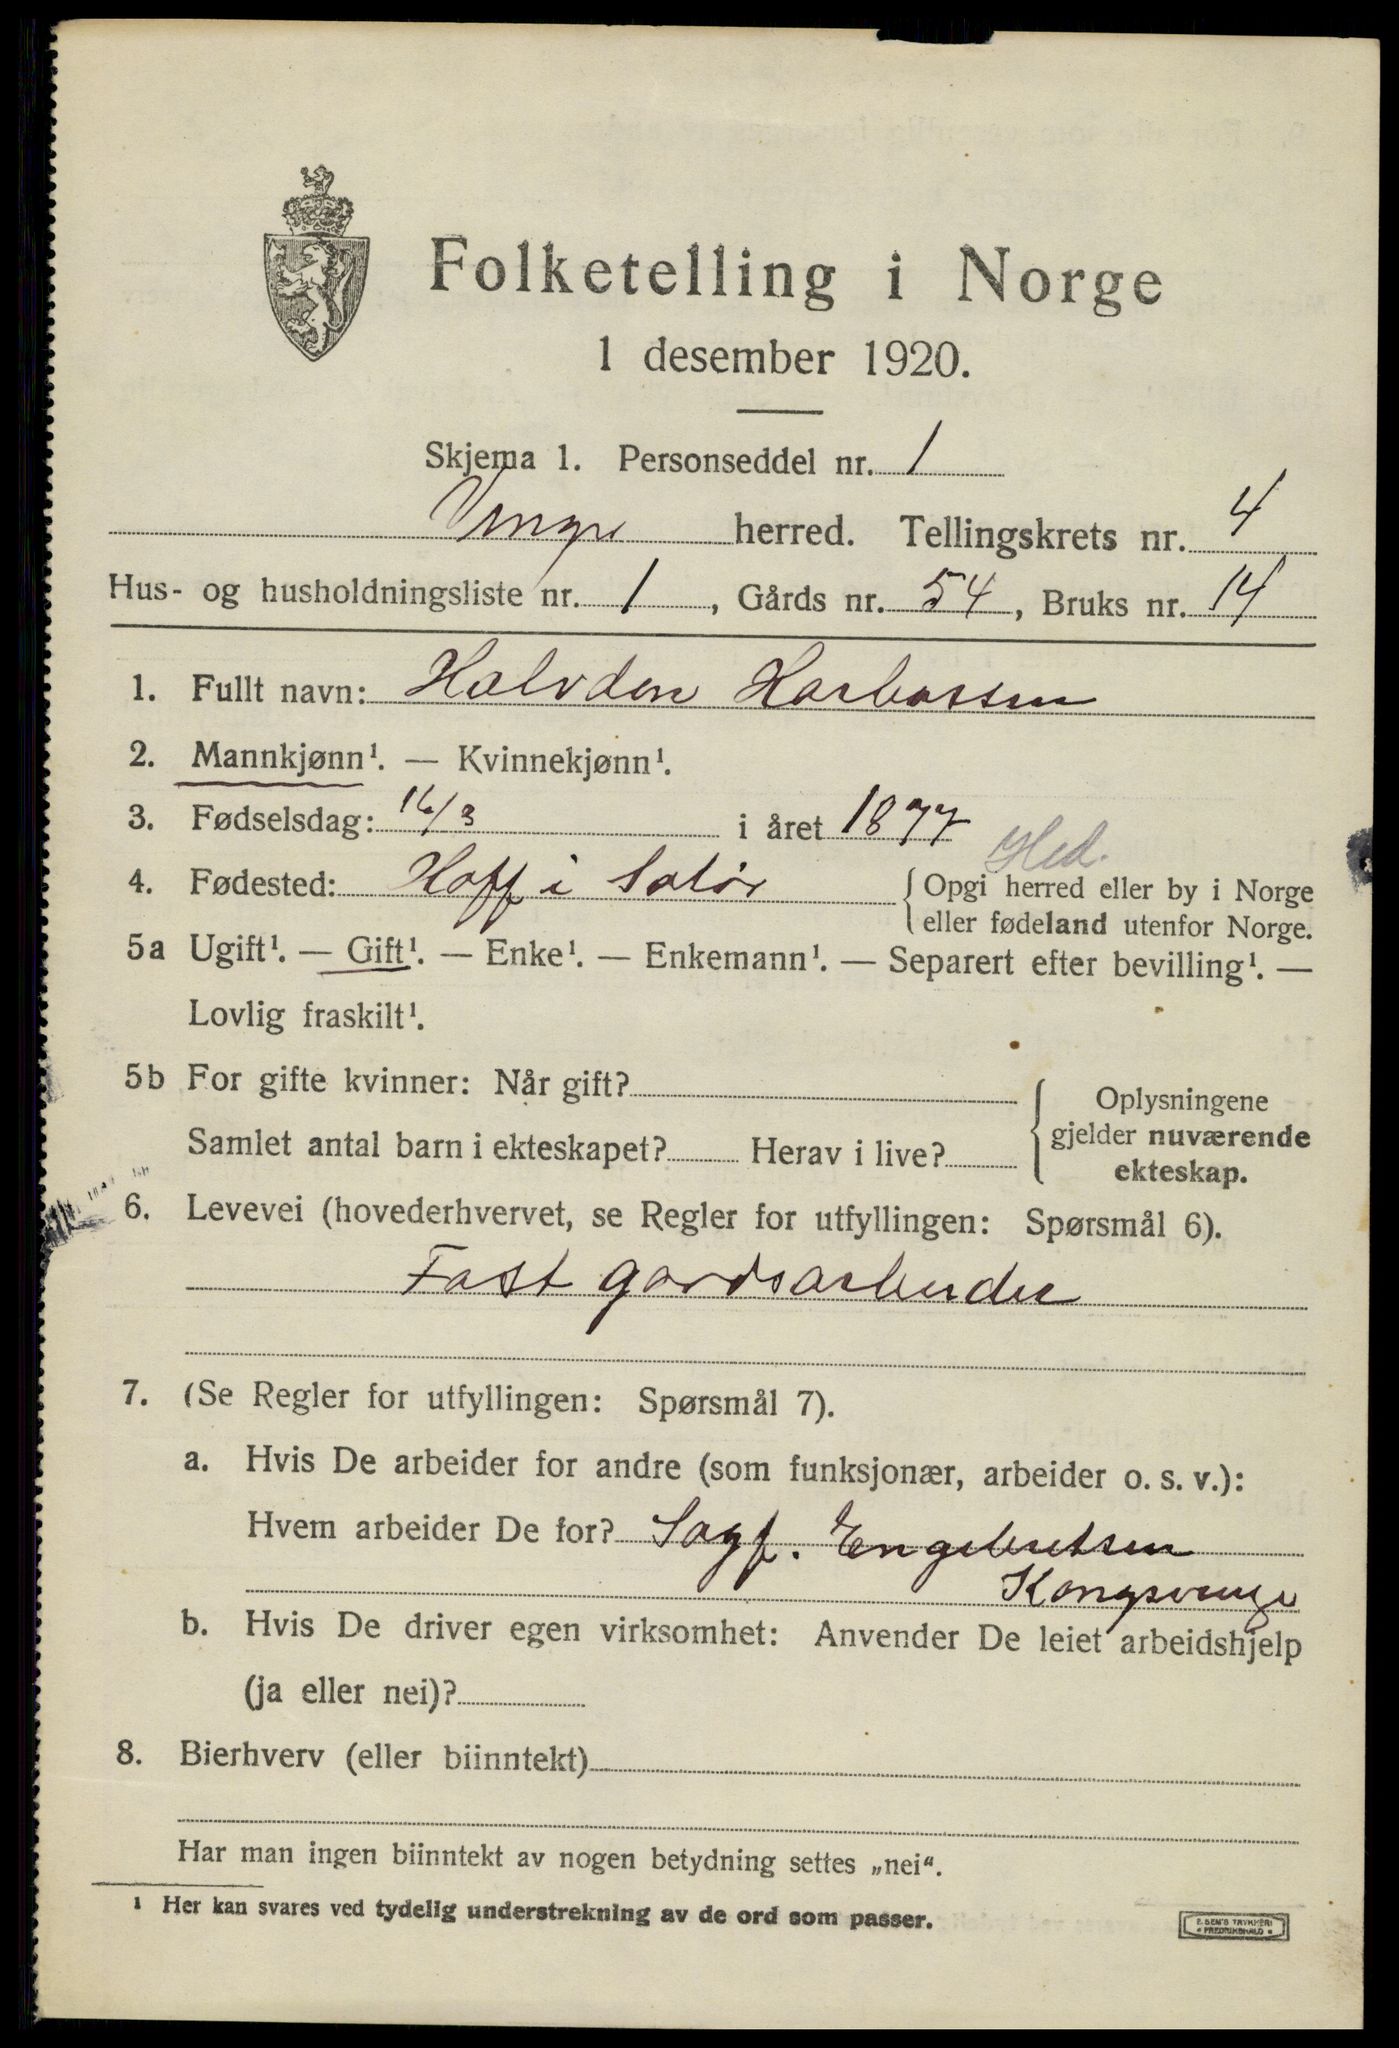 Folketelling i Norge
1 desember 1920.
Skjema 1. Personseddel nr. 1
Vinger herred. Tellingskrets nr. 4
Hus- og husholdningsliste nr. 1, Gårds nr. 54, Bruks nr. 14
1. Fullt navn: Halvdan Harbossen
2. Mannkjønn¹. — Kvinnekjønn¹.
3. Fødselsdag: 16/3 i året 1877
Hed.
4. Fødested: Hoff i Solør { Opgi herred eller by i Norge
eller fødeland utenfor Norge.
5a Ugift¹. — Gift¹. — Enke¹. — Enkemann¹. — Separert efter bevilling¹. —
Lovlig fraskilt¹.
5b For gifte kvinner: Når gift?
Samlet antal barn i ekteskapet? Herav i live?
{ Oplysningene
gjelder nuværende
ekteskap.
6. Levevei (hovederhvervet, se Regler for utfyllingen: Spørsmål 6).
Fast gardsarbeider
7. (Se Regler for utfyllingen: Spørsmål 7).
a. Hvis De arbeider for andre (som funksjonær, arbeider o. s. v.):
Hvem arbeider De for? Sagf. Engebretsen
Kongsvinger
b. Hvis De driver egen virksomhet: Anvender De leiet arbeidshjelp
(ja eller nei)?
8. Bierhverv (eller biinntekt)
Har man ingen biinntekt av nogen betydning settes „nei“.
¹ Her kan svares ved tydelig understrekning av de ord som passer.
E. SEM'S TRYKKERI
• FREDRIKSHALD •